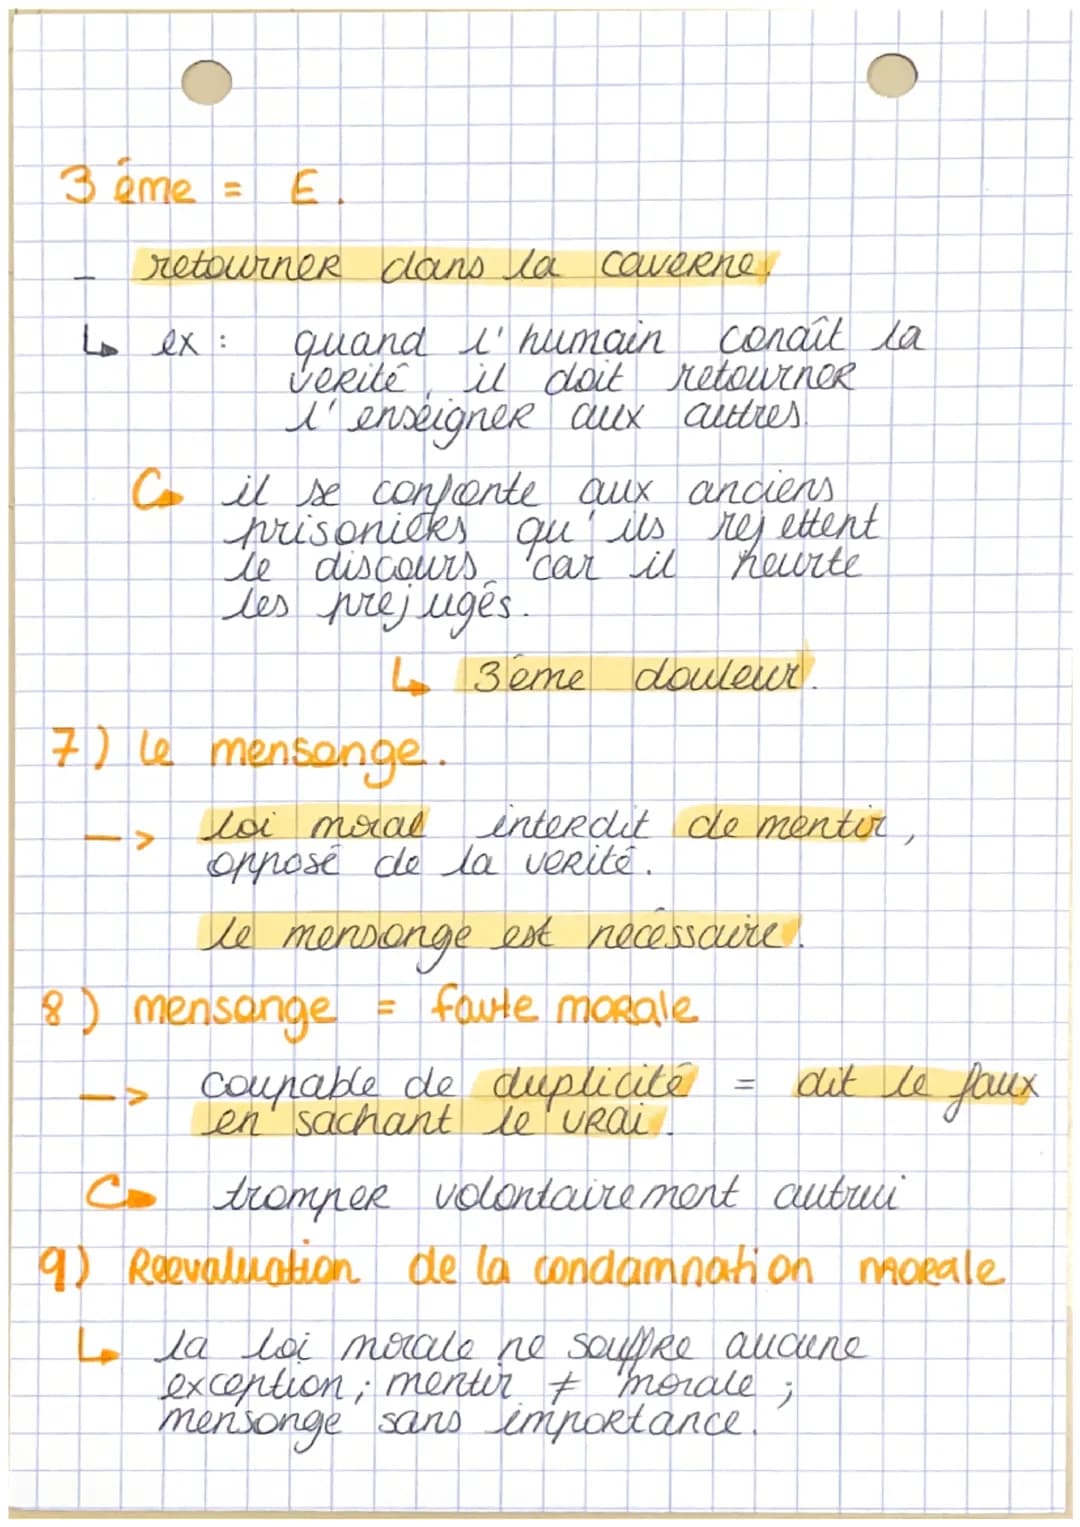 3 éme = E.
– retourner dans la caverne.
↳ ex : quand l'humain conaît la
verité, il doit retourner
l'enséigner aux autres.
↳ il se confronte aux anciens
prisoniers qu'ils rejettent
le discours car il heurte
les préjugés.
↳ 3éme douleur.
7) le mensonge.
--> loi moral interdit de mentir,
opposé de la verité.
le mensonge est nécéssaire.
8) mensonge = faute morale
--> coupable de duplicité = dit le faux
en sachant le vrai.
↳ tromper volontairement autrui
9) Réevaluation de la condamnation morale
↳ la loi morale ne souffre aucune
exception ; mentir ≠ morale ;
mensonge sans importance.